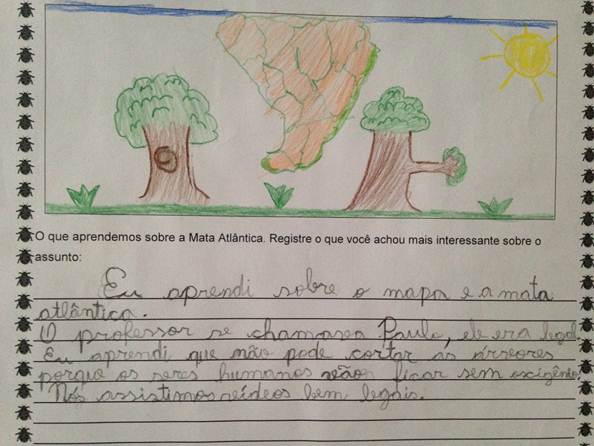 O que aprendemos sobre a Mata Atlântica. Registre o que você achou mais interessante sobre o
assunto:
Eu aprendi sobre o mapa e a mata
atlântica.
O professor se chamava Paulo, ele era legal.
Eu aprendi que não pode cortar as árveores
porque os seres humanos vão ficar sem oxigênto
Nós assistimos veídeos bem legais.